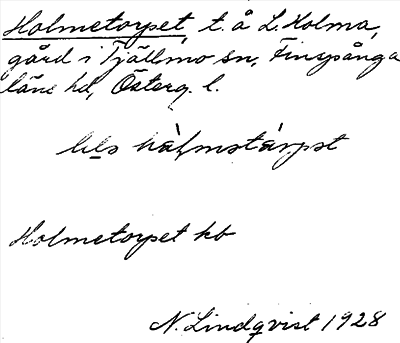 Holmetorpet, t. å L. Holma,
gård i Tjällmo sn, Finspånga
läns hd, Österg. l.
lils hålmstårpst
Holmetorpet kb
N. Lindqvist 1928